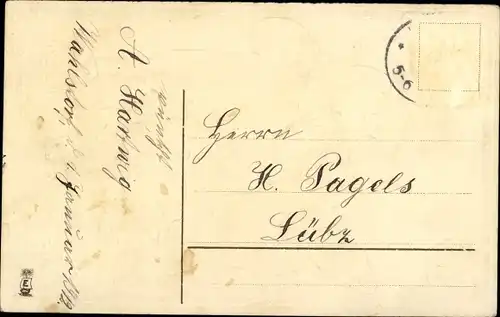 wünscht
A. Hartwig
Wahlsdorf, d. 1. Januar
Herrn
H. Pagels
Lübz
* 5-6
E